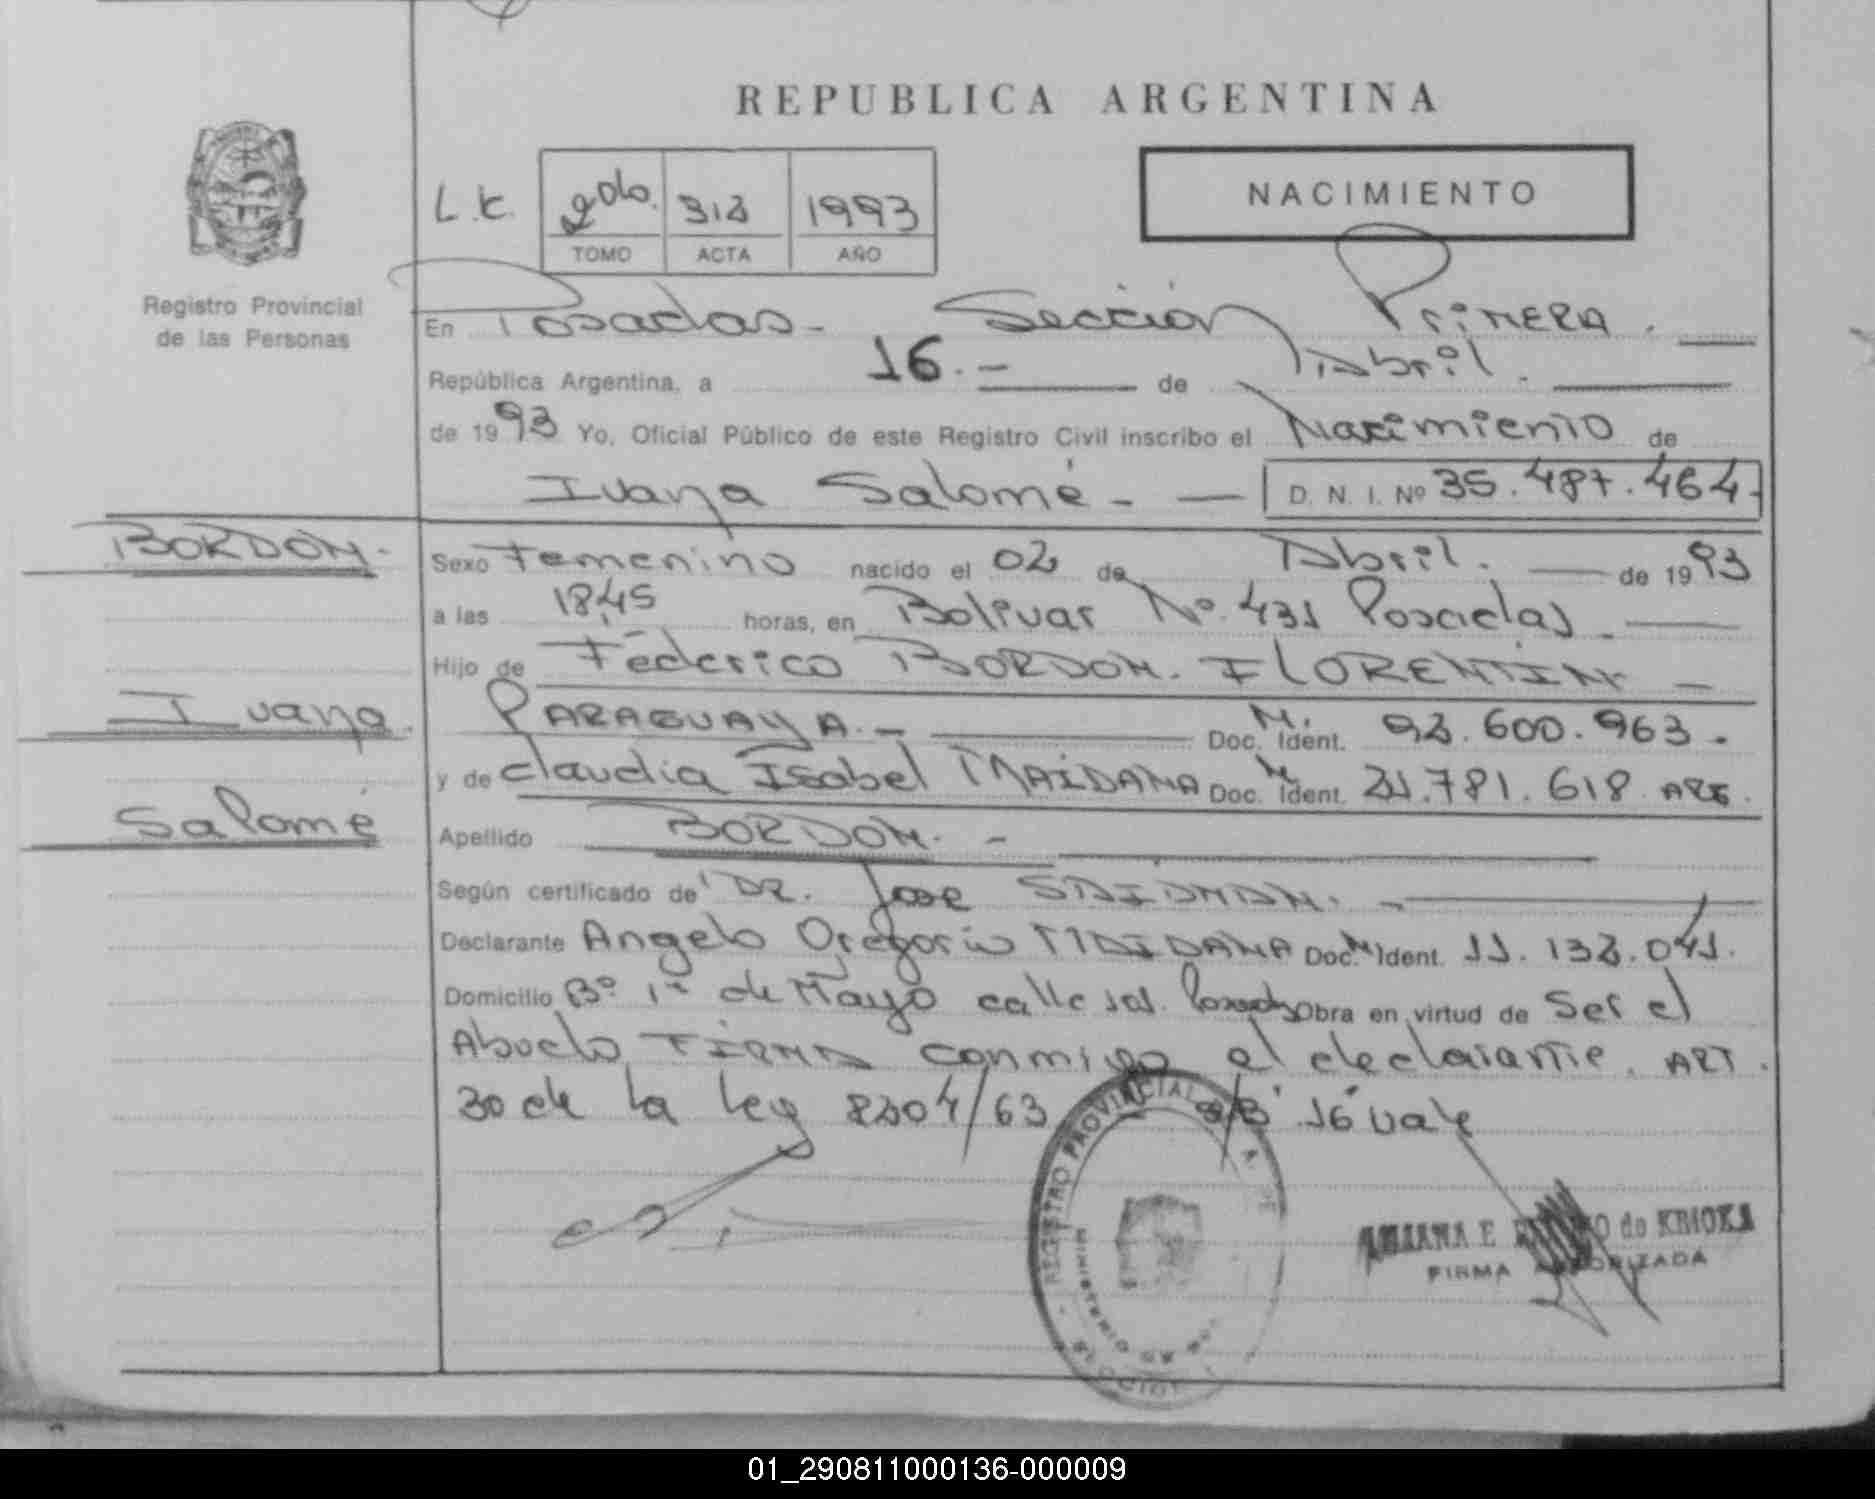 REPUBLICA ARGENTINA
NACIMIENTO
L.E. 2do. 312 1993
TOMO ACTA AÑO
Registro Provincial
de las Personas
En Posadas - Sección Primera.
República Argentina, a 16.- de Abril.
de 1993 Yo, Oficial Público de este Registro Civil inscribo el Nacimiento de
Ivana Salomé - D. N. I. Nº 35.487.464-
BORDON.
Sexo Femenino nacido el 02 de Abril. de 1993
a las 18,45 horas, en Bolivar Nº 431 Posadas -
Hijo de Federico BORDON. FLORENTIN -
Ivana.
PARAGUAYA. - Doc. Ident. 92.600.963.
y de Claudia Isabel MAIDANA Doc. Ident. 21.781.618 ARG.
Salomé
Apellido BORDON. -
Según certificado de DR. Jose SAIDMAN. -
Declarante Angelo Gregorio MAIDANA Doc. Ident. 11.132.041.
Domicilio Bº 1º de Mayo calle sal. Posadas Obra en virtud de Ser el
Abuelo FIRMA conmigo el declarante. ART.
30 de la ley 8204/63 S/B 16 vale
REGISTRO PROVINCIAL
MINISTERIO DE
de KRIOKA
FIRMA AUTORIZADA
01_290811000136-000009